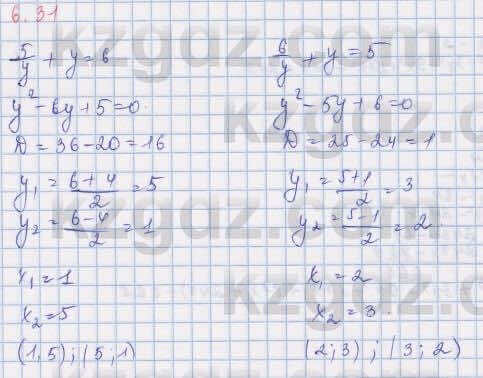 6.31
5/y + y = 6
y² - 6y + 5 = 0
D = 36 - 20 = 16
y₁ = (6 + 4)/2 = 5
y₂ = (6 - 4)/2 = 1
x₁ = 1
x₂ = 5
(1;5);(5;1)
6/y + y = 5
y² - 5y + 6 = 0
D = 25 - 24 = 1
y₁ = (5 + 1)/2 = 3
y₂ = (5 - 1)/2 = 2
x₁ = 2
x₂ = 3
(2;3);(3;2)
kzgdz.com
kzgdz.com
kzgdz.com
kzgdz.com